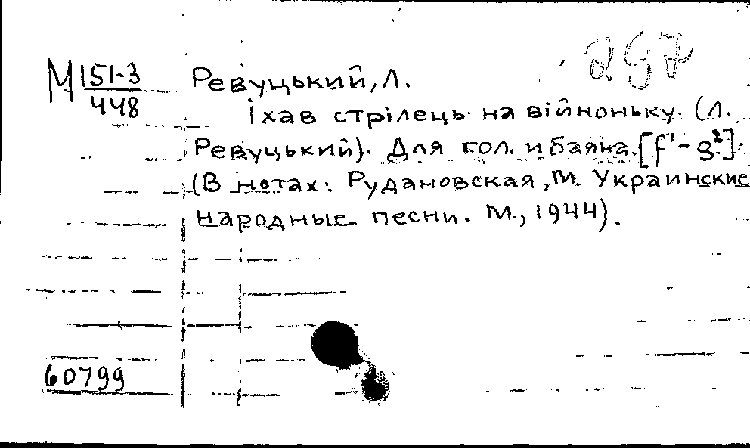 297
М 151-3
448
Ревуцький, Л.
Їхав стрілець на війноньку. (Л.
Ревуцький). Для гол. и баяна. [f¹ - g²].
(В нотах: Рудановская, М. Украинские
народные песни. М., 1944).
60799